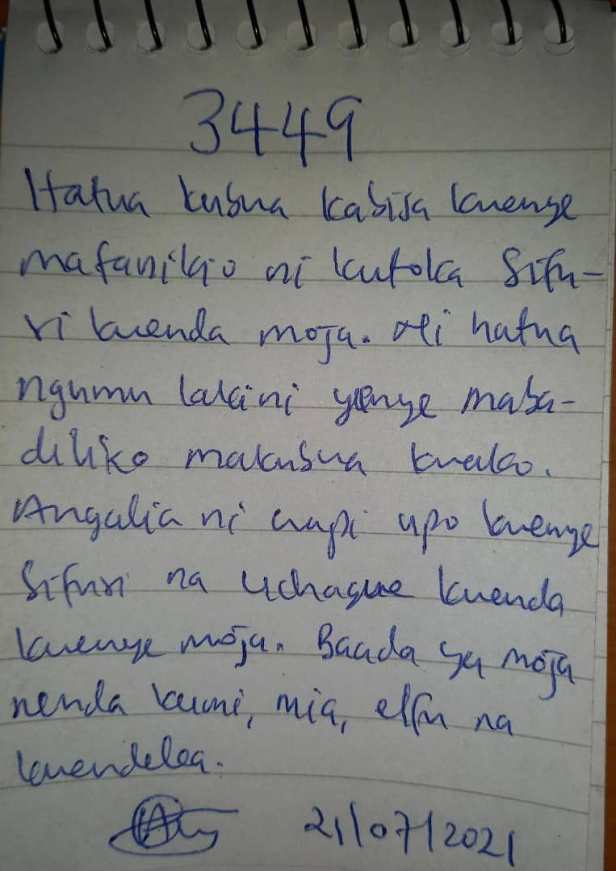 3449
Hatua kubwa kabisa kwenye
mafanikio ni kutoka Sifu-
ri kwenda moja. Ni hatua
ngumu lakini yenye maba-
diliko makubwa kwako.
Angalia ni wapi upo kwenye
Sifuri na uchague kwenda
kwenye moja. Baada ya moja
nenda kumi, mia, elfu na
kuendelea.
21/07/2021